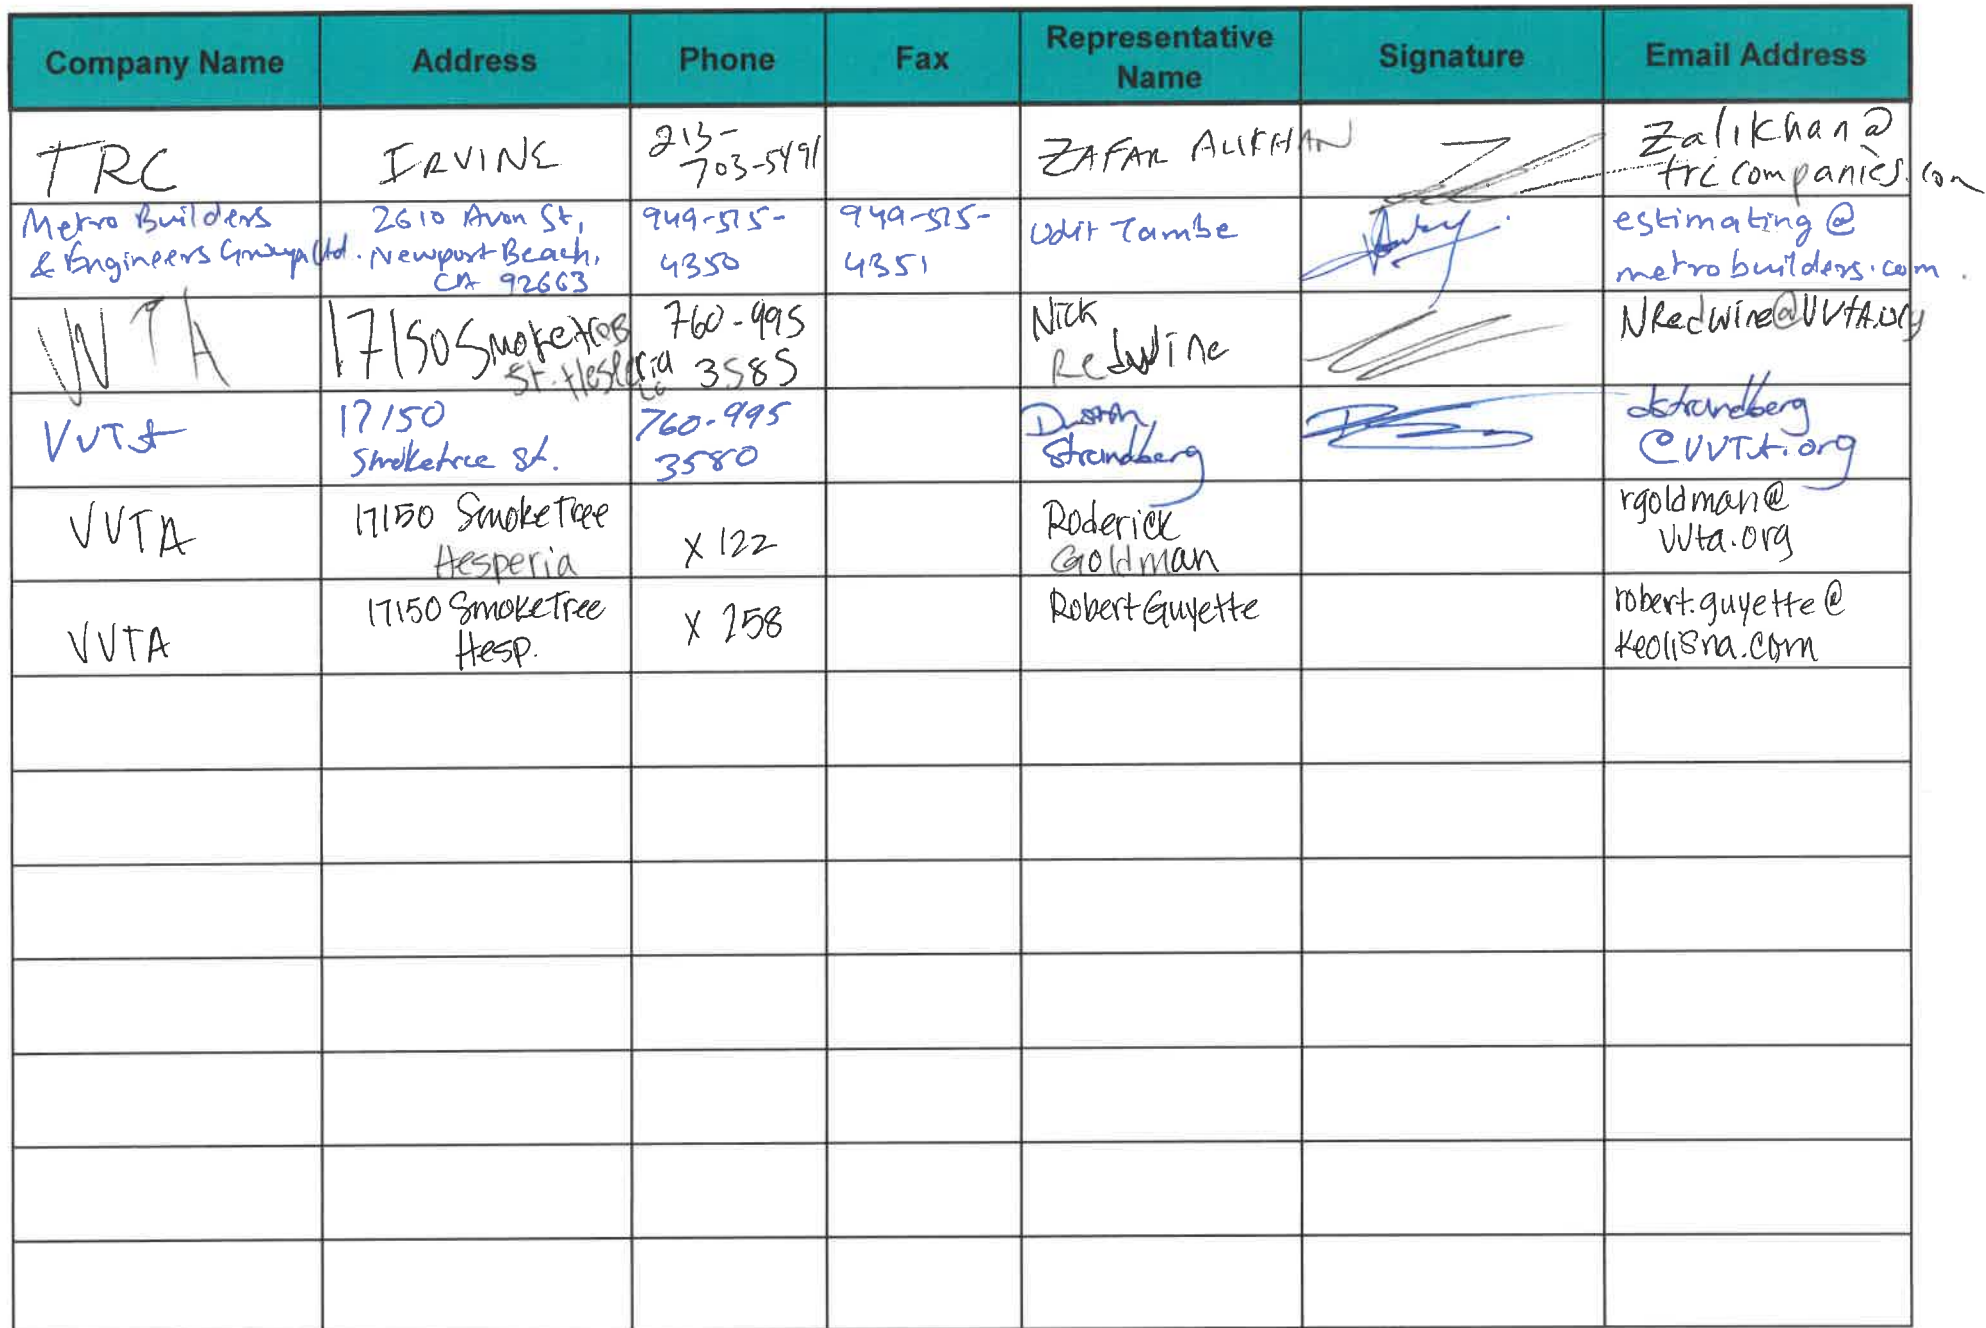 Company Name
Address
Phone
Fax
Representative
Name
Signature
Email Address
TRC
IRVINE
213-
703-5491
ZAFAR ALIKHAN
Zalikhan@
trccompanies.com
Metro Builders
& Engineers Group Ltd.
2610 Avon St,
Newport Beach,
CA 92663
949-515-
4350
949-515-
4351
Udit Tambe
estimating@
metrobuilders.com.
VVTA
17150 Smoketree
St. Hesperia
760-995
3585
Nick
Redwine
NRedwine@VVTA.org
VVTA
17150
Smoketree St.
760-995
3580
Dustin
Strandberg
dstrandberg
@VVTA.org
VVTA
17150 SmokeTree
Hesperia
X 122
Roderick
Goldman
rgoldman@
vvta.org
VVTA
17150 SmokeTree
Hesp.
X 258
Robert Guyette
robert.guyette@
keolisna.com